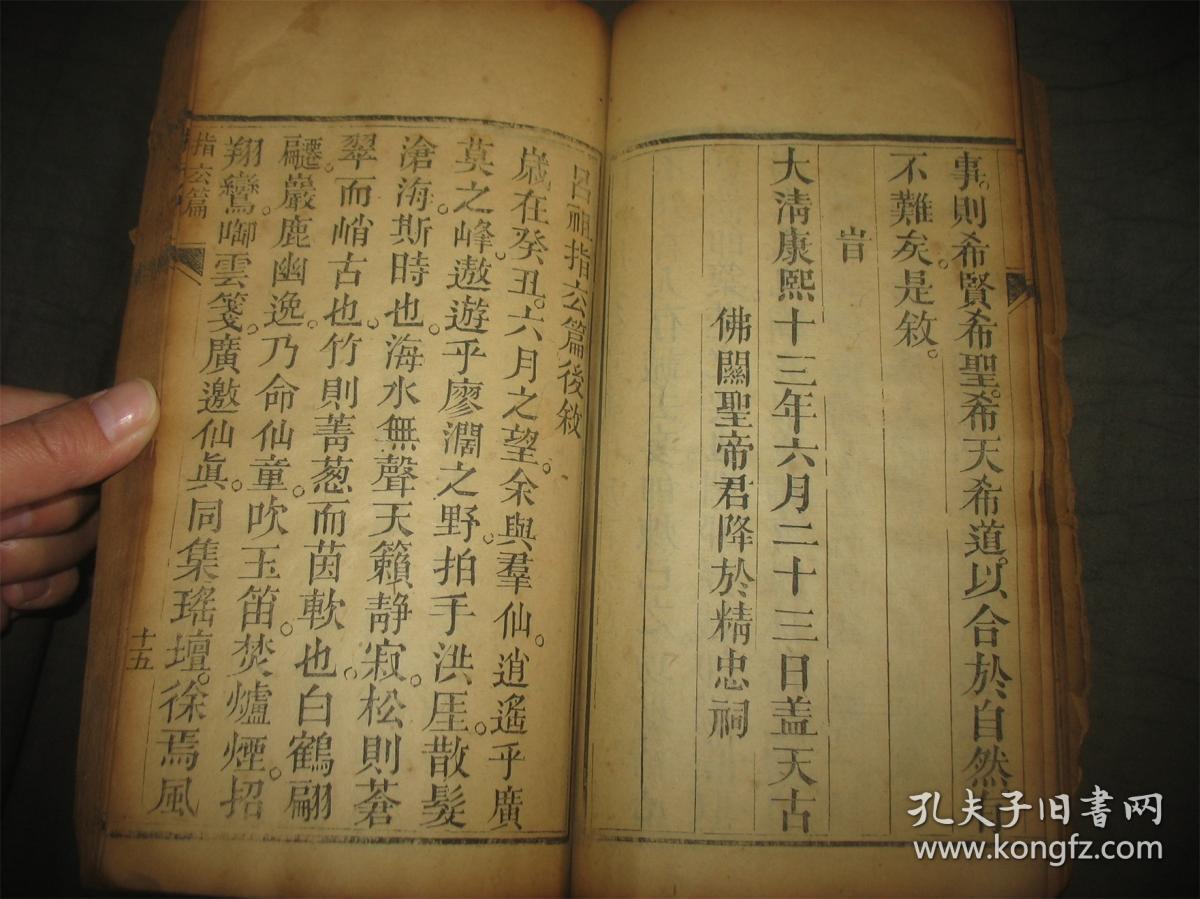 事。則希賢希聖。希天希道。以合於自然
不難矣。是敘。
旹
大淸康熙十三年六月二十三日盖天古
佛關聖帝君降於精忠祠
呂祖指玄篇後敘
嵗在癸丑。六月之望。余與羣仙。逍遙乎廣
莫之峰。遨遊乎廖濶之野。拍手洪厓。散髮
滄海。斯時也。海水無聲。天籟靜寂。松則蒼
翠而峭古也。竹則菁葱。而茵軟也。白鶴翩
䙴。巖鹿幽逸。乃命仙童。吹玉笛。焚爐煙。招
翔鸞。啣雲箋。廣邀仙眞。同集瑤壇。徐焉風
指玄篇
十五
孔夫子旧书网
www.kongfz.com